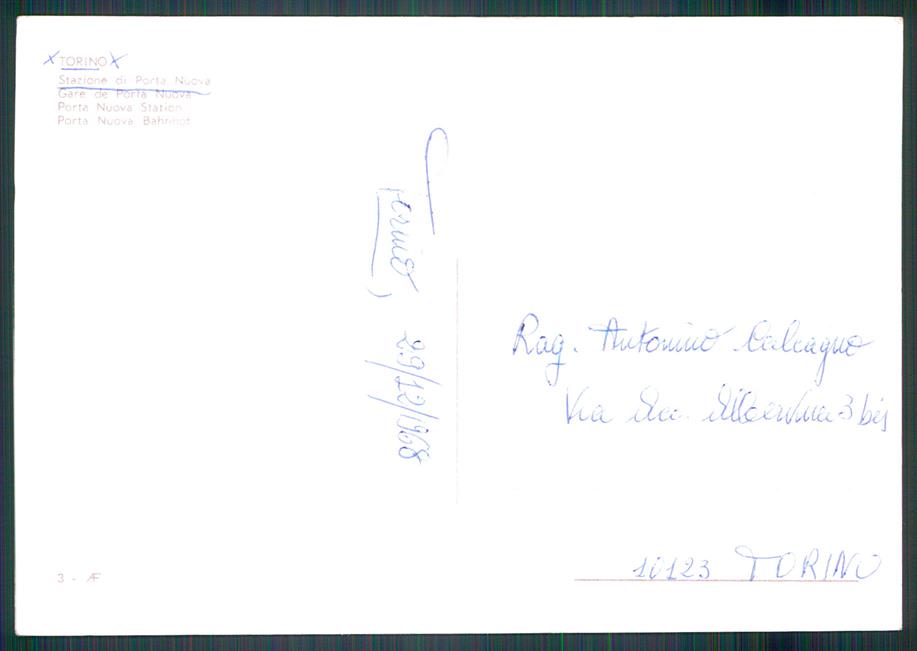 x TORINO x
Stazione di Porta Nuova
Gare de Porta Nuova
Porta Nuova Station
Porta Nuova Bahnhof
29/12/1968
Rag. Antonino Calcagno
Via 3 bis
10123 TORINO
3 - AF